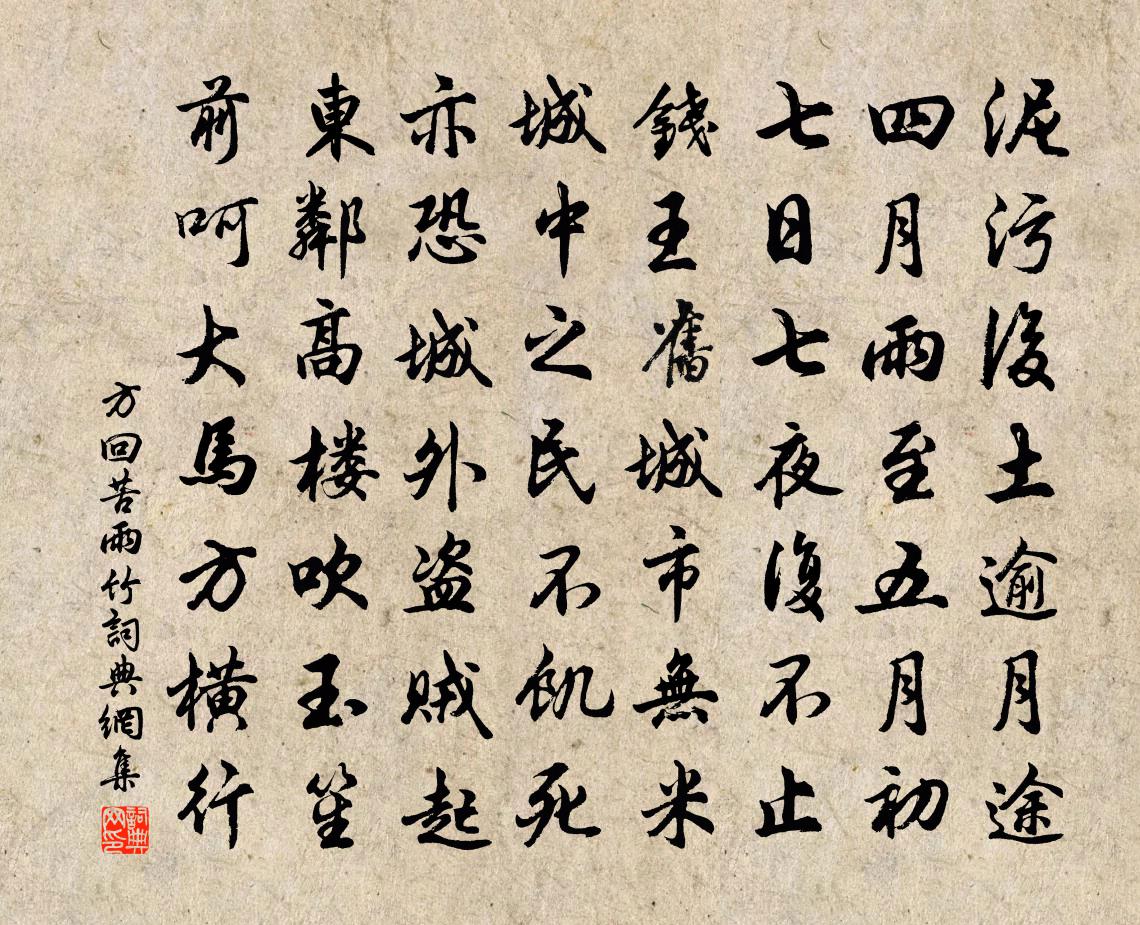 泥污後土逾月途
四月雨至五月初
七日七夜復不止
錢王舊城市無米
城中之民不飢死
亦恐城外盗賊起
東鄰高楼吹玉笙
前呵大馬方橫行
方回苦雨竹詞典網集
詞典网印